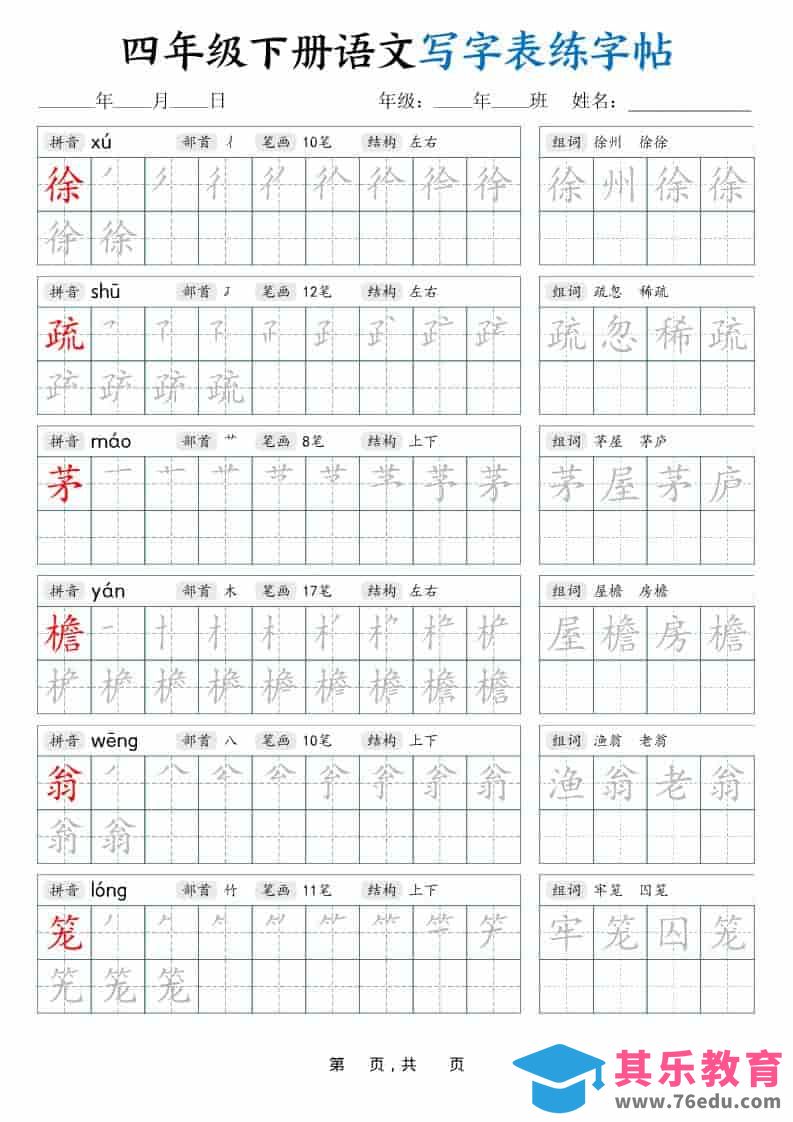 四年级下册语文写字表练字帖
年 月 日 年级： 年 班 姓名：
拼音 xú 部首 彳 笔画 10笔 结构 左右 组词 徐州 徐徐
徐 徐 州 徐 徐
徐
拼音 shū 部首 ⺪ 笔画 12笔 结构 左右 组词 疏忽 稀疏
疏 疏 忽 稀 疏
疏
拼音 máo 部首 艹 笔画 8笔 结构 上下 组词 茅屋 茅庐
茅 茅 茅 屋 茅 庐
拼音 yán 部首 木 笔画 17笔 结构 左右 组词 屋檐 房檐
檐 屋 檐 房 檐
檐
拼音 wēng 部首 八 笔画 10笔 结构 上下 组词 渔翁 老翁
翁 渔 翁 老 翁
翁
拼音 lóng 部首 竹 笔画 11笔 结构 上下 组词 牢笼 囚笼
笼 牢 笼 囚 笼
笼
第 页，共 页
其乐教育
www.76edu.com